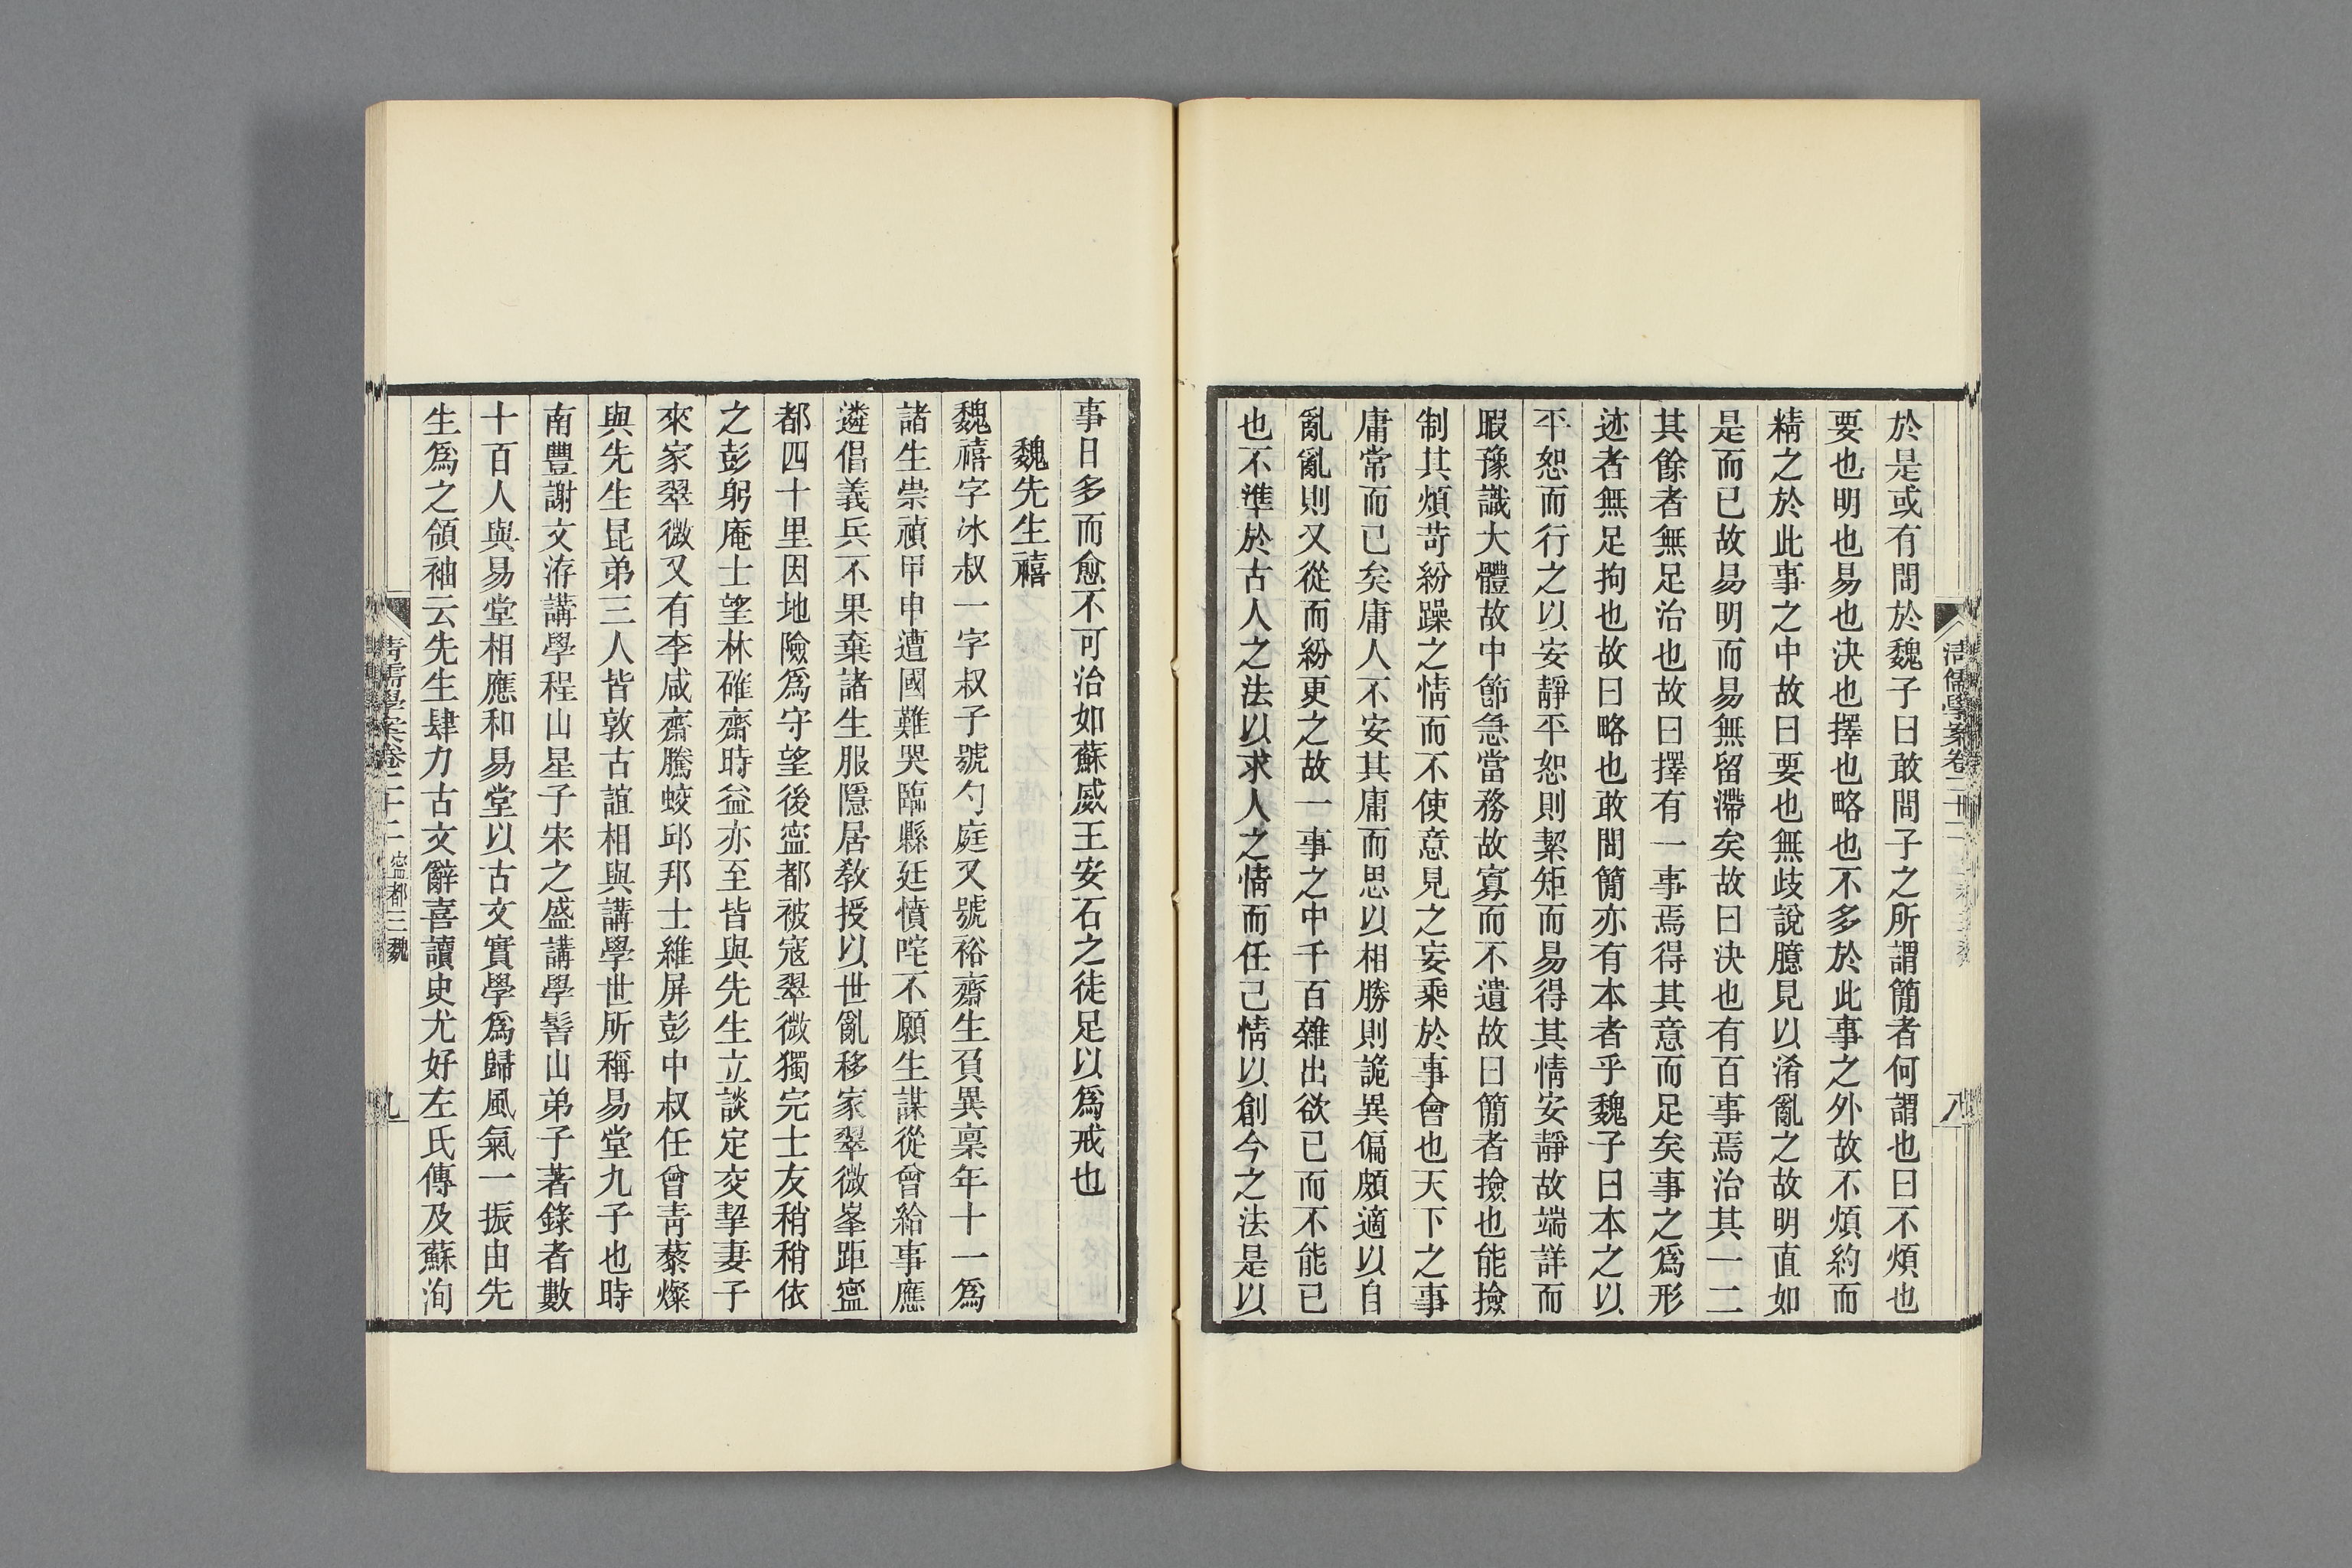 清儒學案卷二十二
八
於是或有問於魏子曰敢問子之所謂簡者何謂也曰不煩也
要也明也易也決也擇也略也不多於此事之外故不煩約而
精之於此事之中故曰要也無歧說臆見以淆亂之故明直如
是而已故易明而易無留滯矣故曰決也有百事焉治其一二
其餘者無足治也故曰擇有一事焉得其意而足矣事之爲形
迹者無足拘也故曰略也敢問簡亦有本者乎魏子曰本之以
平恕而行之以安靜平恕則絜矩而易得其情安靜故端詳而
暇豫識大體故中節急當務故寡而不遺故曰簡者撿也能撿
制其煩苛紛躁之情而不使意見之妄乘於事會也天下之事
庸常而已矣庸人不安其庸而思以相勝則詭異偏頗適以自
亂亂則又從而紛更之故一事之中千百雜出欲已而不能已
也不準於古人之法以求人之情而任己情以創今之法是以
事日多而愈不可治如蘇威王安石之徒足以爲戒也
魏先生禧
魏禧字冰叔一字叔子號勺庭又號裕齋生負異稟年十一爲
諸生崇禎甲申遭國難哭臨縣廷憤咤不願生謀從曾給事應
遴倡義兵不果棄諸生服隱居教授以世亂移家翠微峯距寧
都四十里因地險爲守望後寧都被寇翠微獨完士友稍稍依
之彭躬庵士望林確齋時益亦至皆與先生立談定交挈妻子
來家翠微又有李咸齋騰蛟邱邦士維屏彭中叔任曾靑藜燦
與先生昆弟三人皆敦古誼相與講學世所稱易堂九子也時
南豐謝文洊講學程山星子宋之盛講學髻山弟子著錄者數
十百人與易堂相應和易堂以古文實學爲歸風氣一振由先
生爲之領袖云先生肆力古文辭喜讀史尤好左氏傳及蘇洵
清儒學案卷二十二 寧都三魏
九